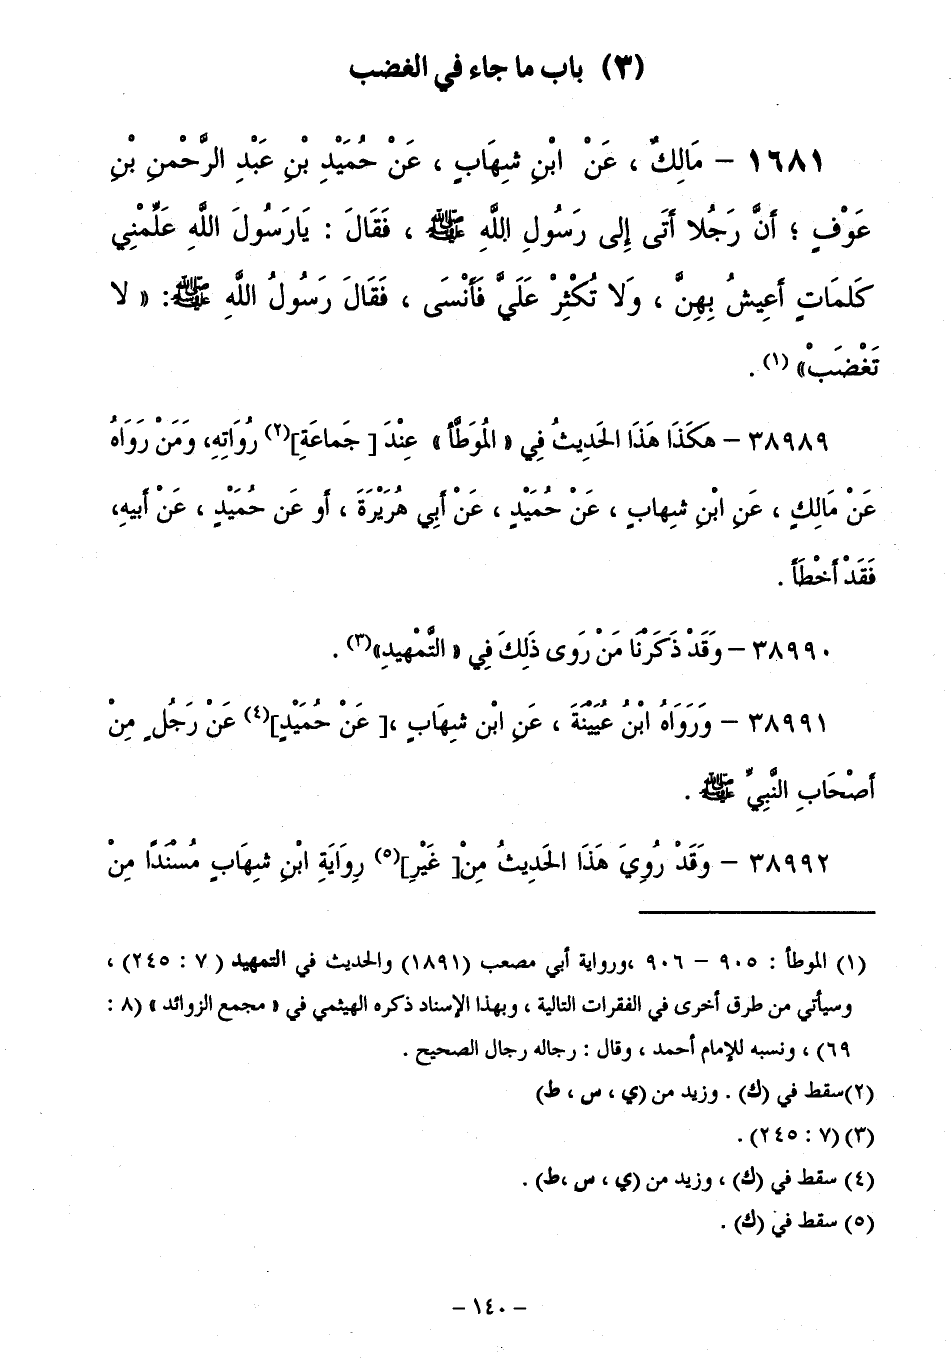 (٣) باب ما جاء في الغضب
١٦٨١ – مَالِكٌ ، عَنْ ابْنِ شِهَابٍ ، عَنْ حُمَيْدِ بْنِ عَبْدِ الرَّحْمنِ بْنِ
عَوْفٍ ؛ أَنَّ رَجُلا أَتَى إِلى رَسُولِ اللَّهِ ﷺ ، فَقَالَ : يَارَسُولَ اللَّهِ عَلِّمْنِي
كَلمَاتٍ أَعِيشُ بِهِنَّ ، وَلا تُكْثِرْ عَلَيَّ فَأَنْسَى ، فَقَالَ رَسُولُ اللَّهِ ﷺ: « لا
تَغْضَبْ» (١) .
٣٨٩٨٩ – هكَذَا هَذَا الحَدِيثُ فِي « الْمُوَطَّأ » عِنْدَ [ جَماعَةِ](٢) رُوَاتِهِ، وَمَنْ رَوَاهُ
عَنْ مَالِكٍ ، عَنِ ابْنِ شِهابٍ ، عَنْ حُمَيْدٍ ، عَنْ أَبِي هُرَيْرَةَ ، أَو عَن حُمَيْدٍ ، عَنْ أَبيهِ،
فَقَدْ أَخْطَأَ .
٣٨٩٩٠ – وَقَدْ ذَكَرْنَا مَنْ رَوَى ذَلِكَ فِي « التَّمْهِيدِ»(٣) .
٣٨٩٩١ – وَرَوَاهُ ابْنُ عُيَيْنَةَ ، عَنِ ابْن شِهَابٍ ،[ عَنْ حُمَيْدٍ](٤) عَنْ رَجُلٍ مِنْ
أَصْحَابِ النَّبِيِّ ﷺ .
٣٨٩٩٢ – وَقَدْ رُوِيَ هَذَا الحَدِيثُ مِنْ[ غَيْرِ](٥) رِوَايَةِ ابْنِ شِهَابٍ مُسْنَدًا مِنْ
(١) الموطأ : ٩٠٥ – ٩٠٦ ،ورواية أبي مصعب (١٨٩١) والحديث في التمهيد ( ٧ : ٢٤٥) ،
وسيأتي من طرق أخرى في الفقرات التالية ، وبهذا الإسناد ذكره الهيثمي في « مجمع الزوائد » (٨ :
٦٩) ، ونسبه للإمام أحمد ، وقال : رجاله رجال الصحيح .
(٢)سقط في (ك) . وزيد من (ي ، س ، ط)
(٣) (٧ : ٢٤٥) .
(٤) سقط في (ك) ، وزيد من (ي ، س ،ط) .
(٥) سقط في (ك) .
– ١٤٠ –